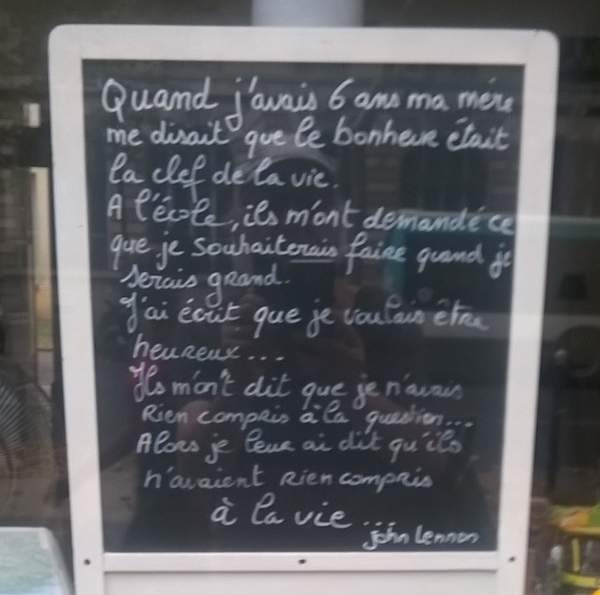 Quand j'avais 6 ans ma mère
me disait que le bonheur était
la clef de la vie.
A l'école, ils m'ont demandé ce
que je souhaiterais faire quand je
serais grand.
J'ai écrit que je voulais être
heureux...
Ils m'ont dit que je n'avais
rien compris à la question...
Alors je leur ai dit qu'ils
n'avaient rien compris
à la vie...
John Lennon